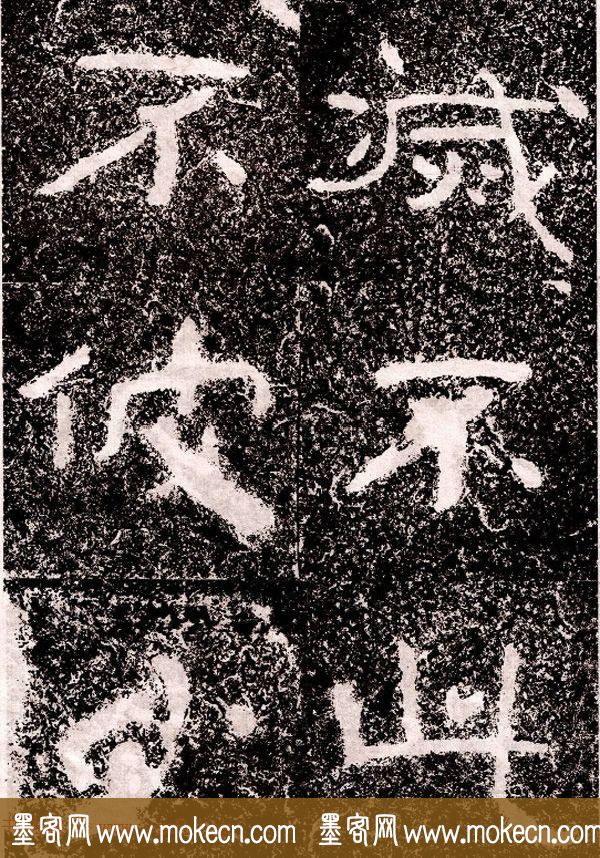 滅不
不彼
墨客网 www.mokecn.com 墨客网 www.mokecn.com